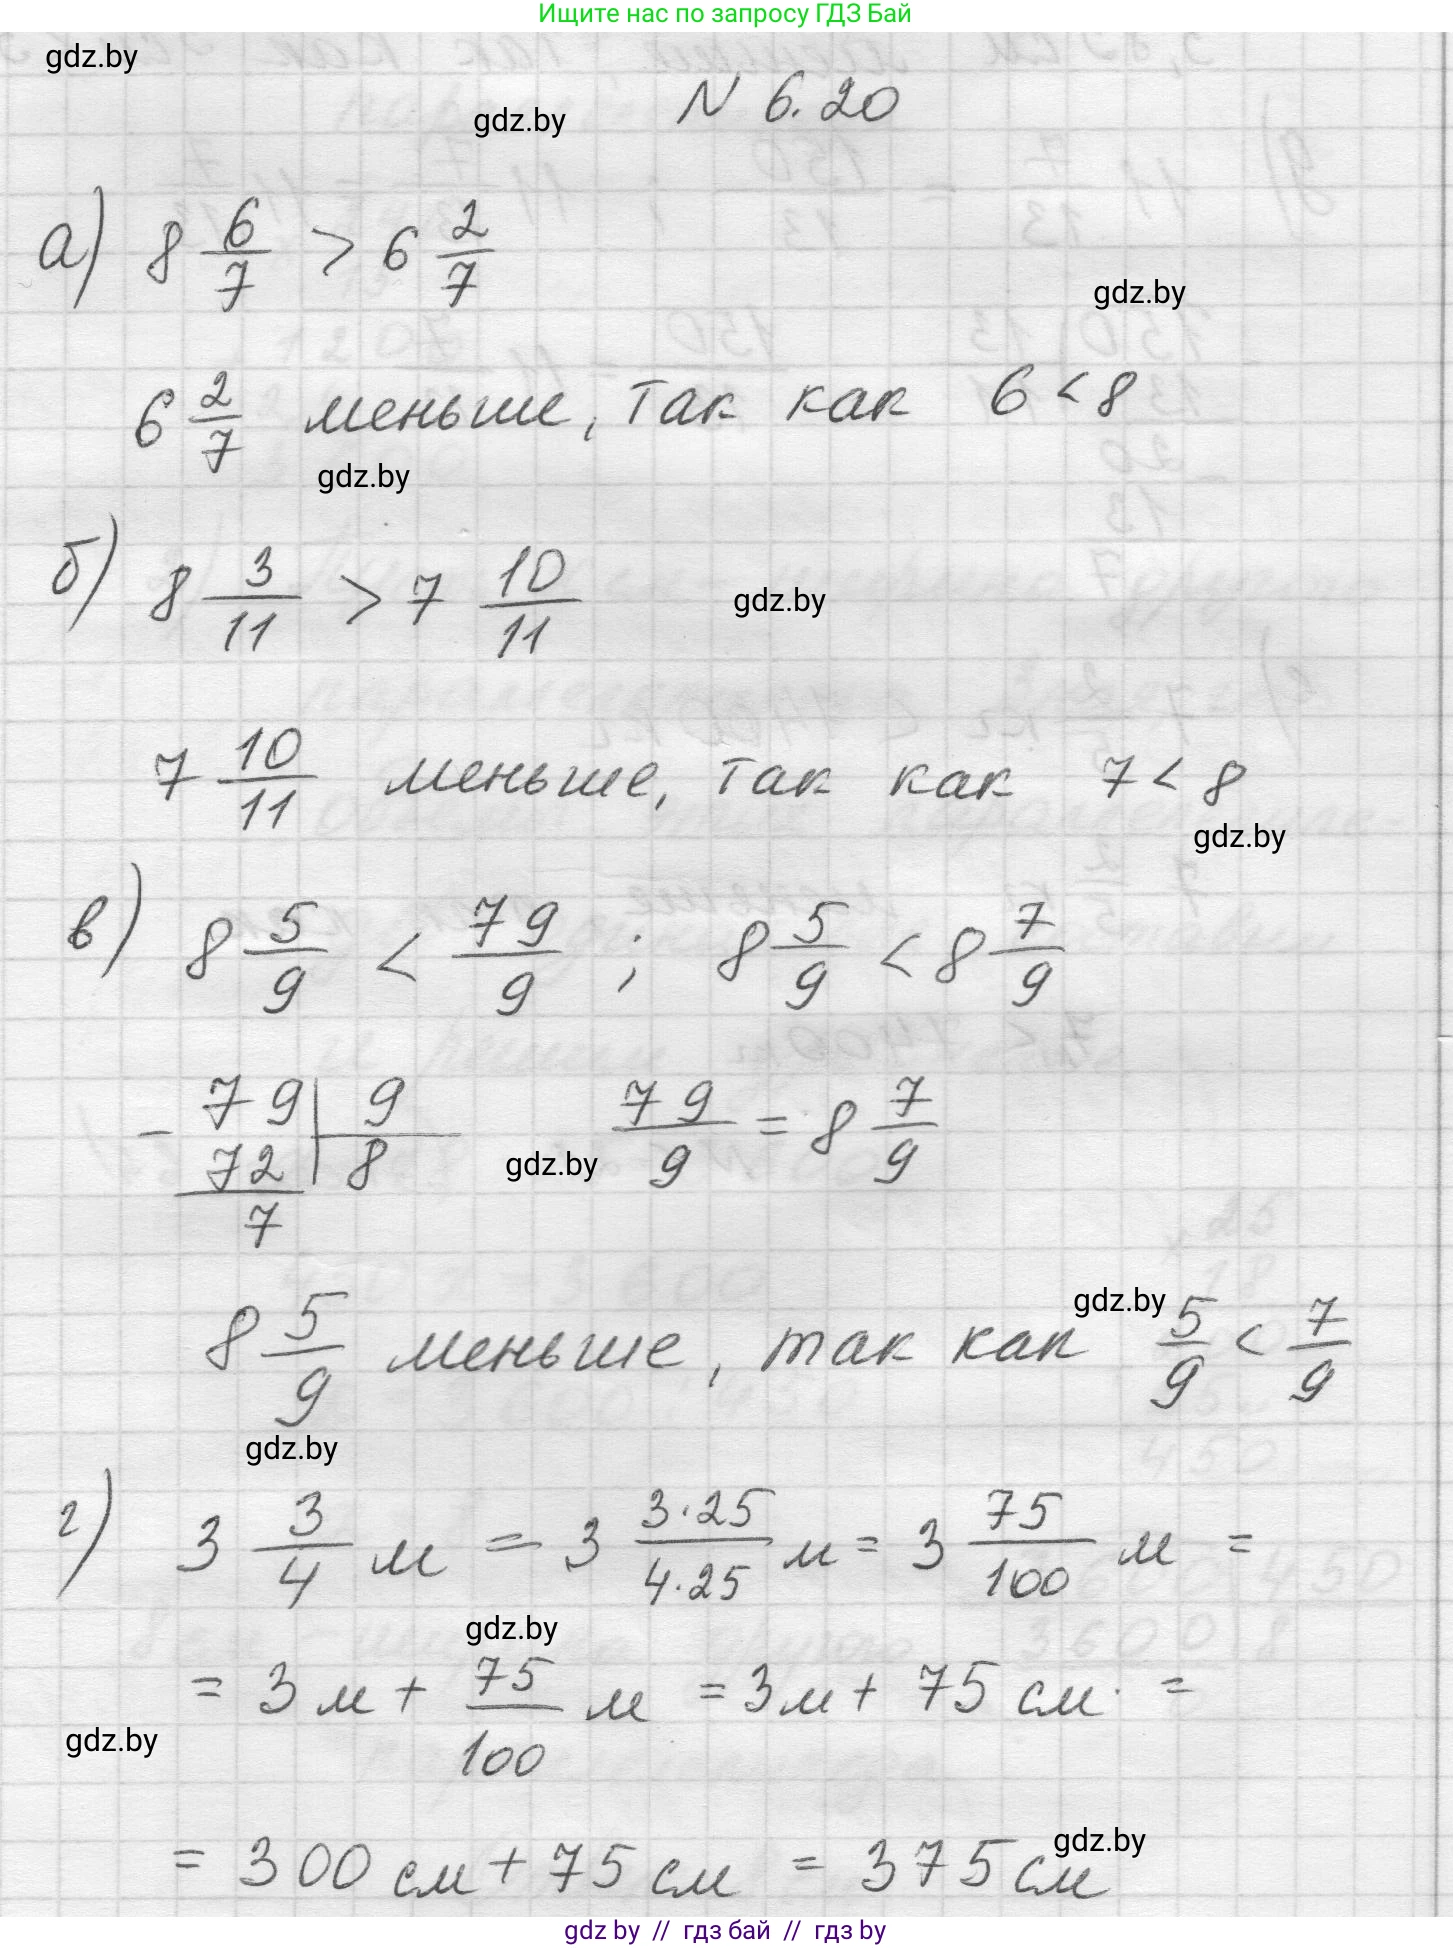 Ищите нас по запросу ГДЗ Бай
gdz.by
N 6.20
gdz.by
а) 8 6/7 > 6 2/7
gdz.by
6 2/7 меньше, так как 6 < 8
gdz.by
б) 8 3/11 > 7 10/11
gdz.by
7 10/11 меньше, так как 7 < 8
gdz.by
в) 8 5/9 < 79/9 ; 8 5/9 < 8 7/9
- 79 | 9
72 | 8
7
79/9 = 8 7/9
gdz.by
8 5/9 меньше, так как 5/9 < 7/9
gdz.by
gdz.by
г) 3 3/4 м = 3 3·25/4·25 м = 3 75/100 м =
gdz.by
= 3 м + 75/100 м = 3 м + 75 см =
gdz.by
= 300 см + 75 см = 375 см
gdz.by
gdz by // гдз бай // гдз by